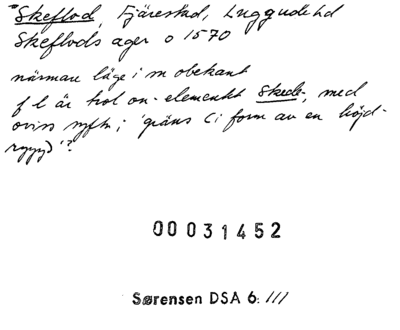 *Skeflod, Fjärestad, Luggude hd
Skeflods ager o 1570
närmare läge i sn obekant
f l är trol on-elementet Skede-, med
oviss syftn; 'gräns (i form av en höjd-
rygg)'?
00031452
Sørensen DSA 6: 111